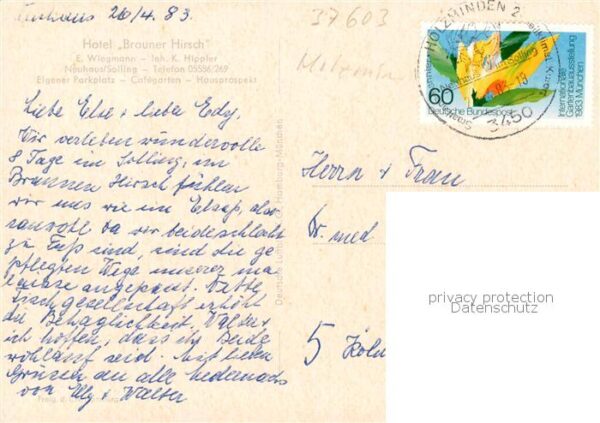 Neuhaus 26/4. 83.
37603
Holzminden
Hotel „Brauner Hirsch"
E. Wiegmann – Inh. K. Hippler
Neuhaus/Solling – Telefon 05536/269
Eigener Parkplatz – Cafégarten – Hausprospekt
Liebe Else + lieber Edy,
Wir verleben wundervolle
8 Tage im Solling, im
Braunen Hirsch fühlen
wir uns wie im
da wir beide schlecht
zu Fuß sind, sind die ge
pflegten Wege unserer ma
laise angepasst. Nette
Tischgesellschaft erhöht
die Behaglichkeit. Walter +
ich hoffen, dass ihr Beide
wohlauf seid. Mit lieben
Grüssen an alle
von Elly + Walter
Herrn + Frau
Dr. med
5 Köln
HOLZMINDEN 2
3450
60
Deutsche Bundespost
Internationale
Gartenbauausstellung
1983 München
privacy protection
Datenschutz